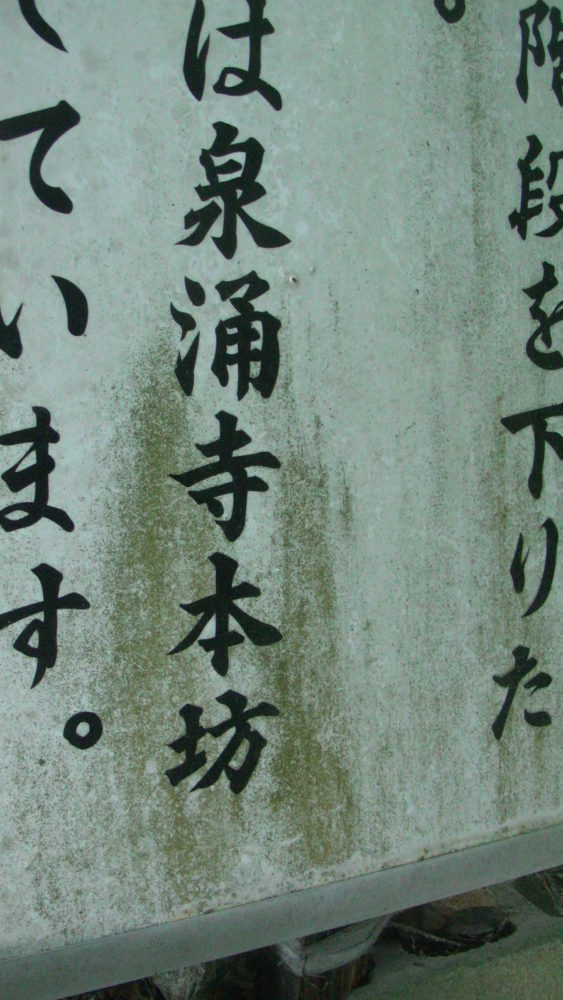 階段を下りた
。
は泉涌寺本坊
ています。